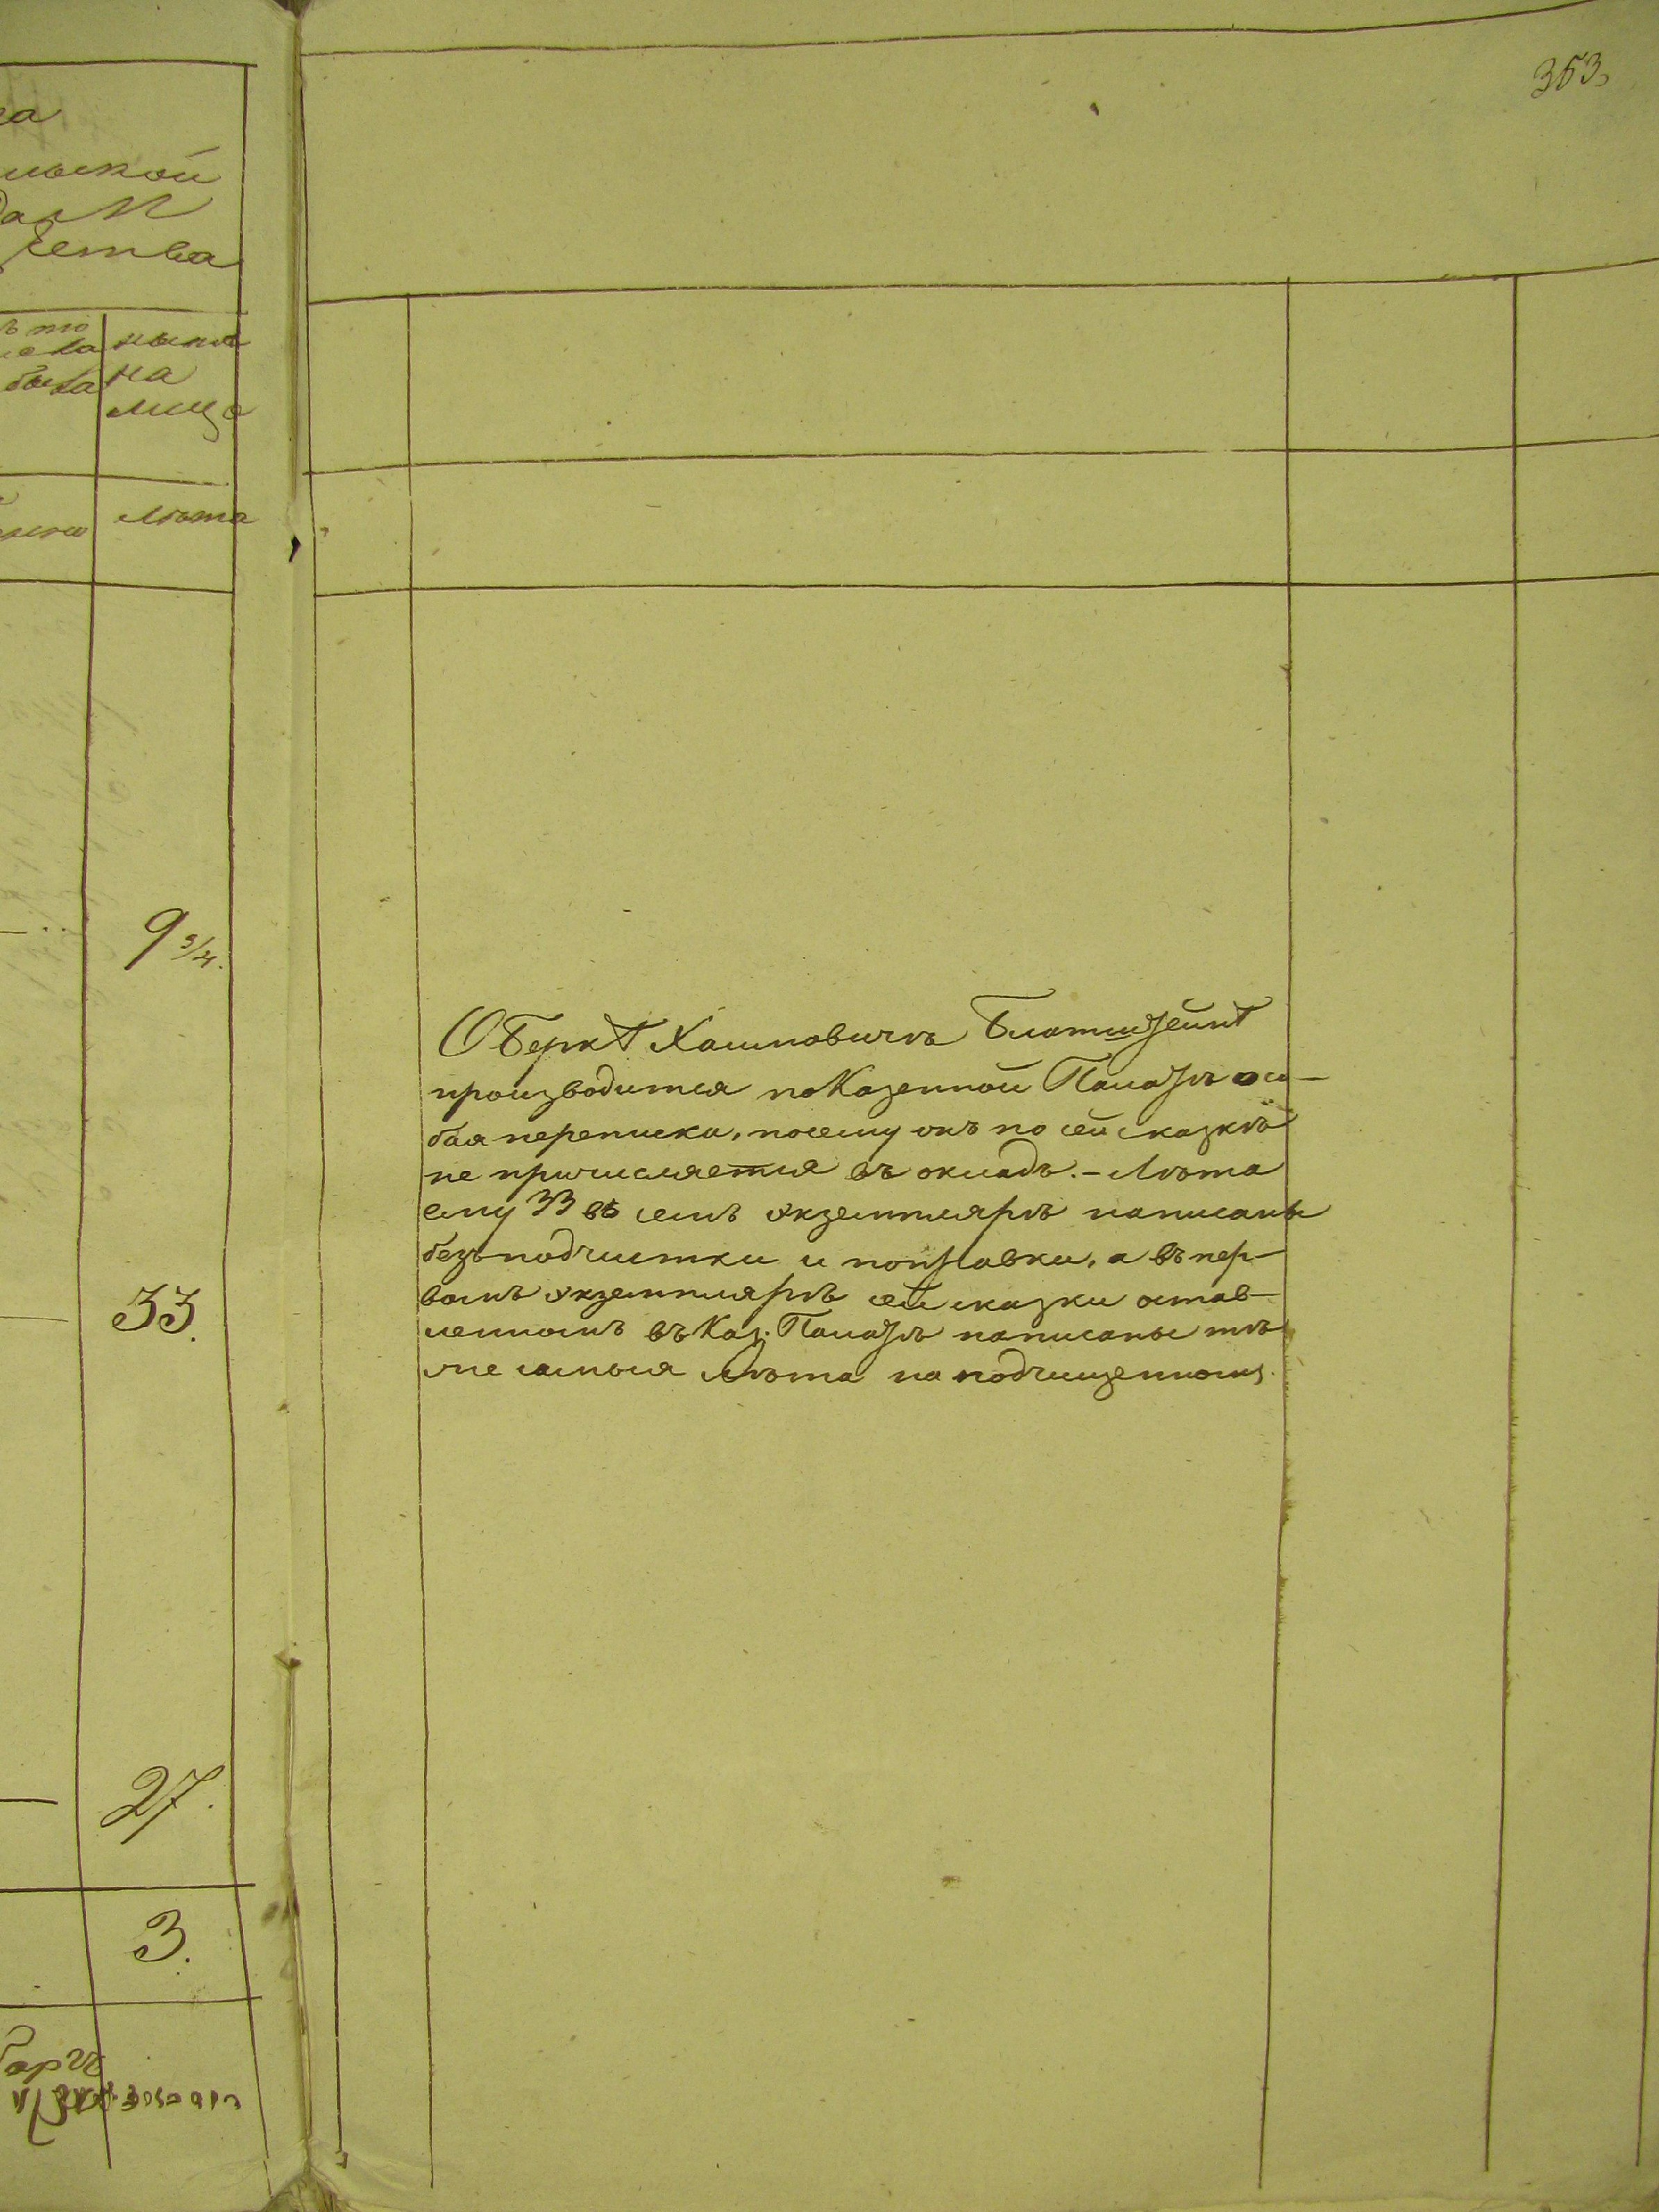 353.
мьской
ства
ла
была
нынѣ
на
лицо
лѣта
9 3/4.
33.
27.
3.
О Беркѣ Хаимовичѣ
производится по Казенной Палатѣ осо-
бая переписка, посему онъ по сей сказкѣ
не причисляется въ окладъ. - Лѣта
ему 33 въ семъ экземплярѣ написаны
безъ подчистки и поправки, а въ пер-
вомъ экземплярѣ сей сказки остав-
ленномъ въ Каз. Палатѣ написаны тѣ
же самыя лѣта на подчищенномъ.